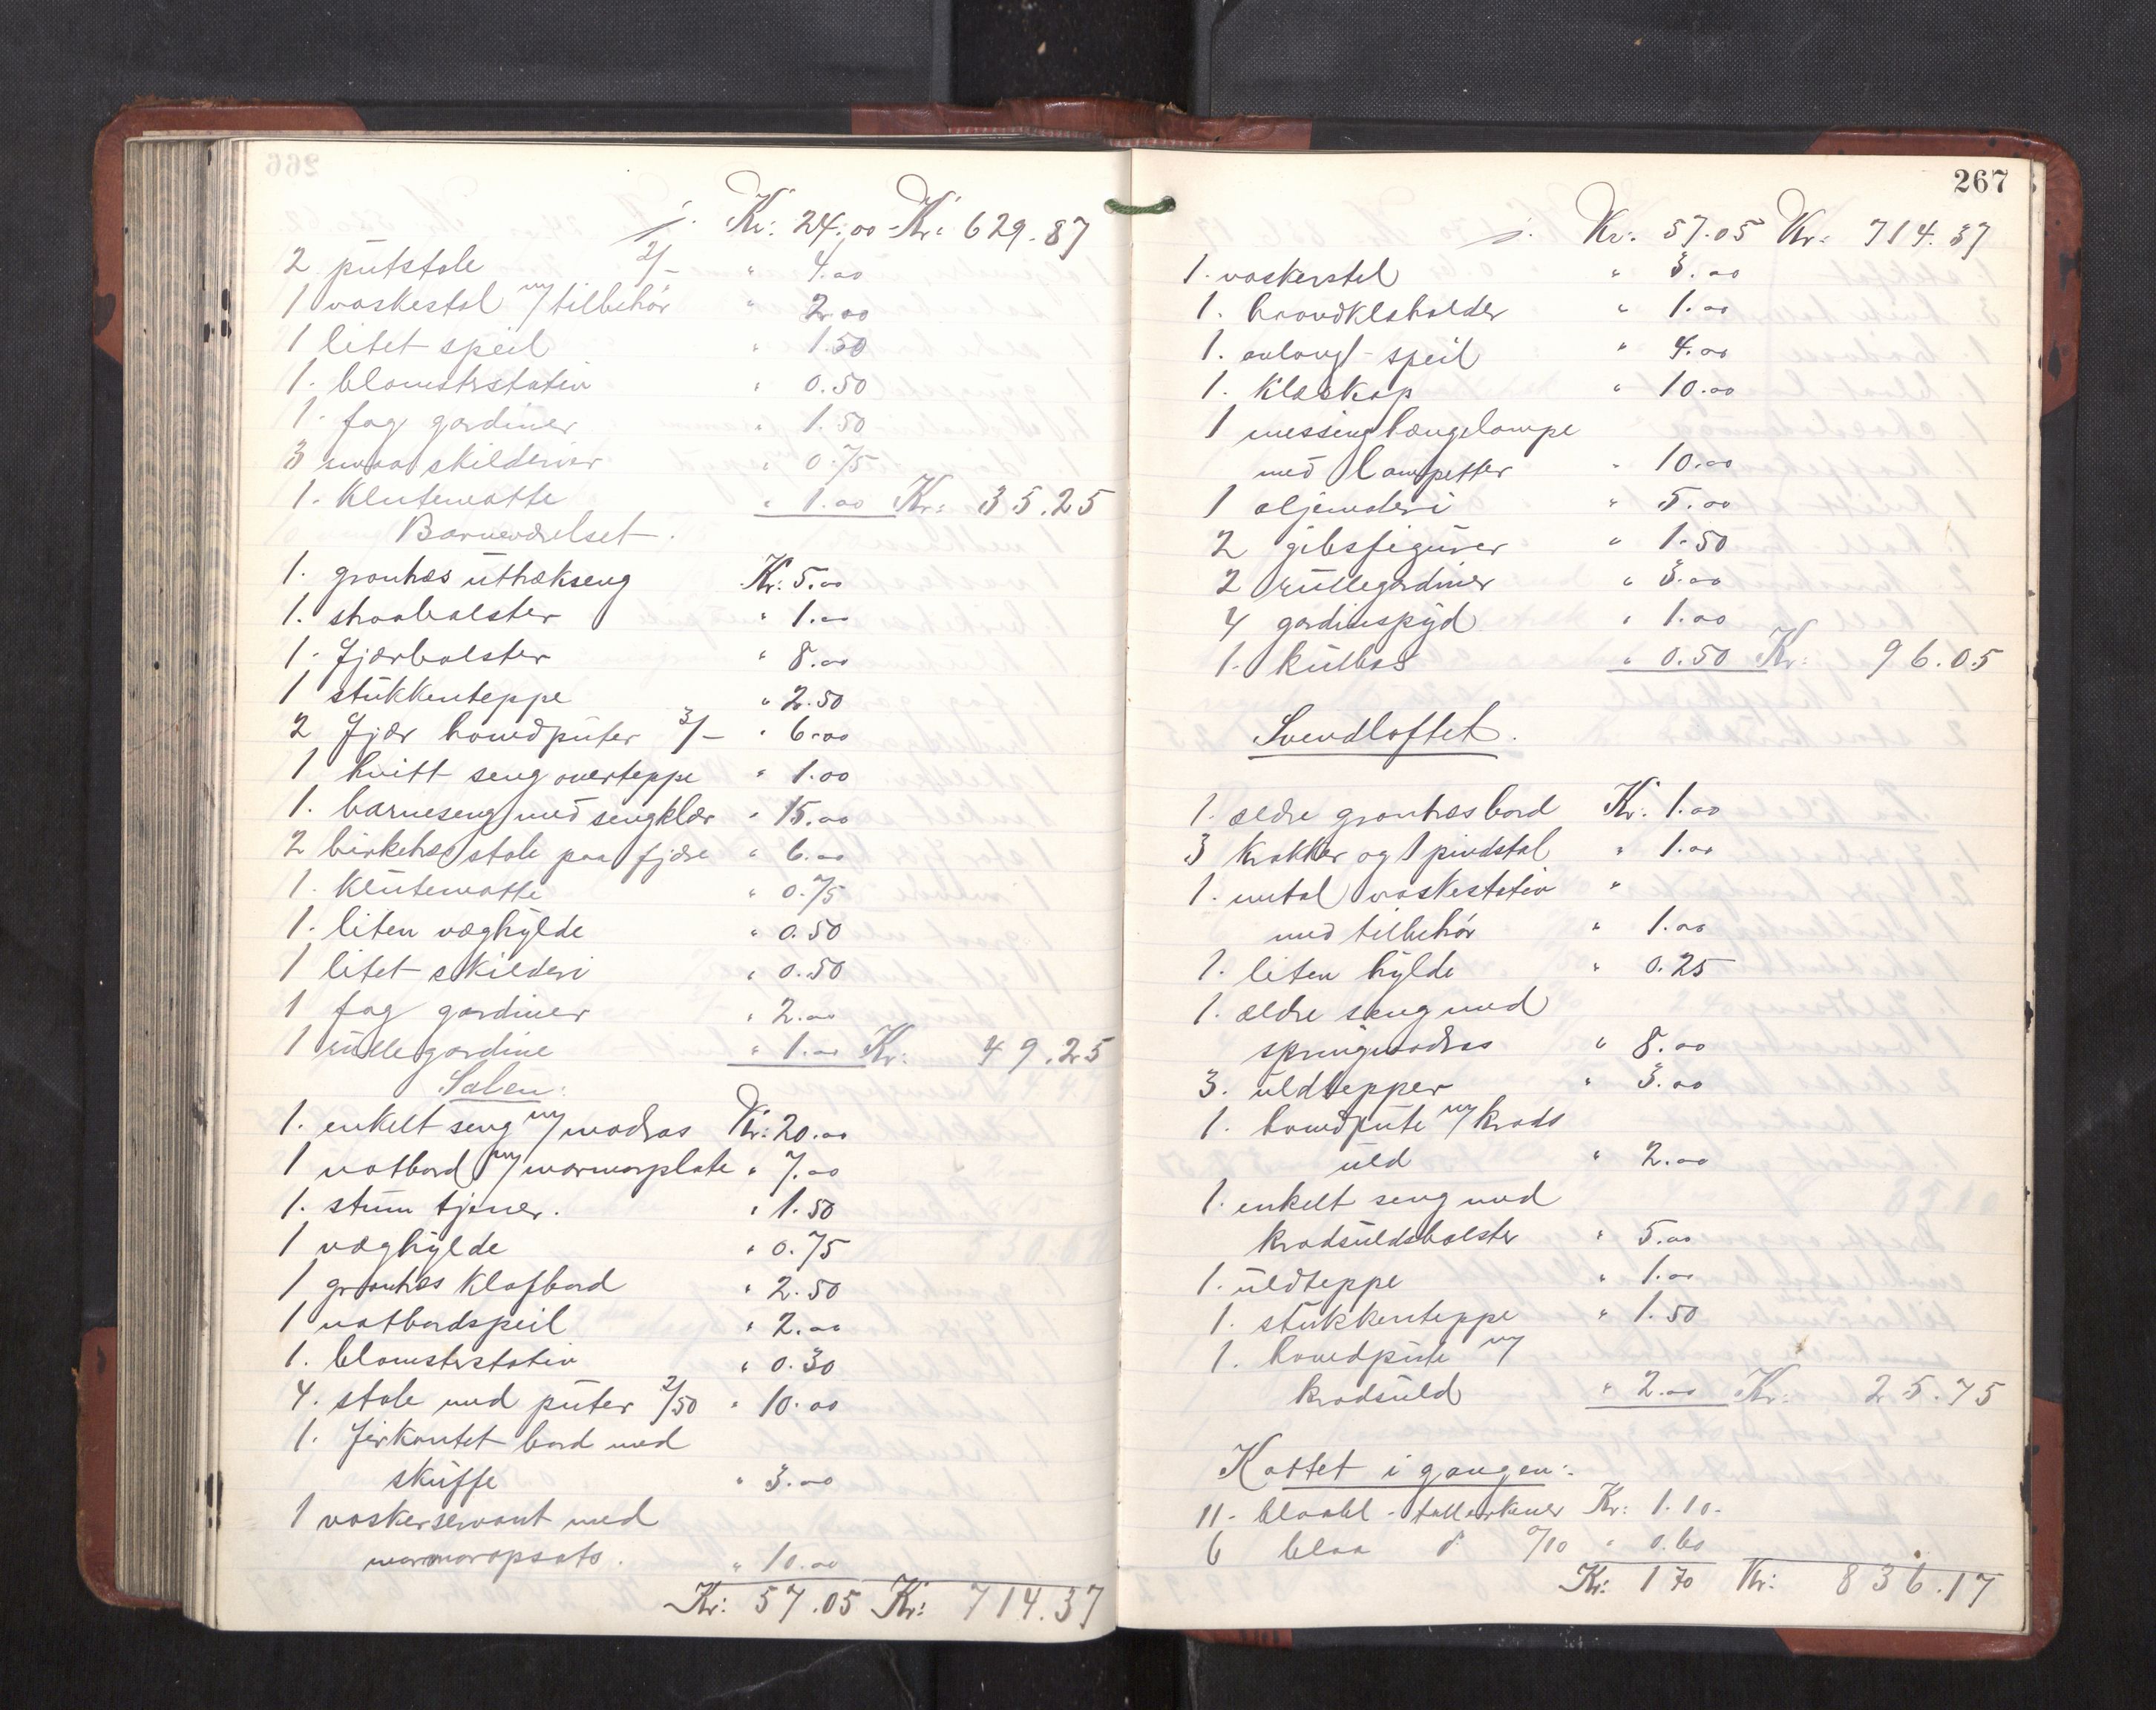 Kr: 24.00 Kr: 629.87
2 pütstole 2/- " 4.00
1 vaskestol m/ tilbehör " 2.00
1 litet speil " 1.50
1. blomsterstativ " 0.50
1. fag gardiner " 1.50
3 smaa skilderier " 0.75
1. Klutematte " 1.00 Kr: 35.25
Barneværelset.
1. grantræs üttrækseng Kr: 5.00
1. straabolster " 1.00
1. fjærbolster " 8.00
1 stükkenteppe " 2.50
2 fjær hovedpüter 3/- " 6.00
1 hvitt seng overteppe " 1.00
1. barneseng med sengklær " 15.00
2 birketræs stole paa fjære " 6.00
1. Klütematte " 0.75
1. liten væghylde " 0.50
1 litet skilderi " 0.50
1 fag gardiner " 2.00
1 rüllegardine " 1.00 Kr: 49.25
Salen:
1. enkelt seng m/ madras Kr: 20.00
1 natbord m/ marmorplate " 7.00
1. stüm tjener. " 1.50
1 væghylde " 0.75
1 grantræs Klafbord " 2.50
1 natbordspeil " 2.00
1. blomsterstativ " 0.30
4. stole med püter 2/50 " 10.00
1. firkantet bord med
sküffe " 3.00
1 vaskeservant med
marmoropsats. " 10.00
Kr: 57.05 Kr: 714.37
267
Kr: 57.05 Kr: 714.37
1. vaskerstel " 3.00
1. haandklæholder " 1.00
1. avlangt - speil " 4.00
1. Klæskap " 10.00
1 messing hængelampe
med lampetter " 10.00
1 oljemaleri " 5.00
2 gibsfigürer " 1.50
2 rüllegardiner " 3.00
4 gardinspyd " 1.00
1. külbas " 0.50 Kr: 96.05
Svendloftet.
1. ældre grantræsbord Kr. 1.00
3 Krakker og 1 pindstol " 1.00
1. metal vaskestativ "
med tilbehör " 1.00
1. liten hylde " 0.25
1. ældre seng med
springmadras " 8.00
3. üldtepper " 3.00
1. hovedpüte m/ krads
üld " 2.00
1. enkelt seng med
kradsüldsbolster " 5.00
1. üldteppe " 1.00
1. stükkenteppe " 1.50
1. hovedpüte m/
kradsüld " 2.00 Kr: 25.75
Kottet i gangen:
11. blaabl - tallerkner Kr: 1.10.
6 blaa d° 0/10 " 0.60
Kr: 1 70 Kr: 836.17